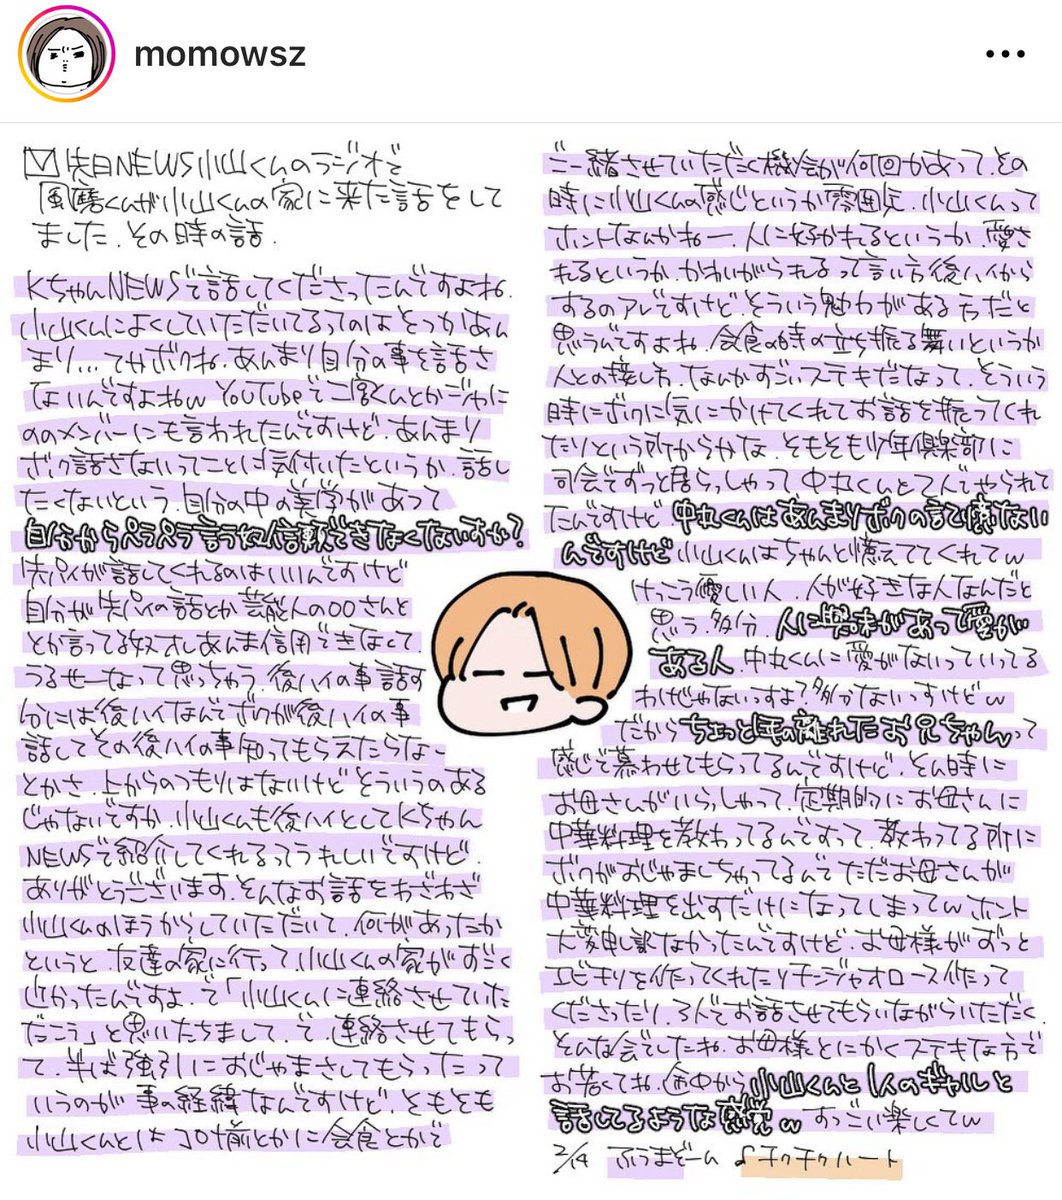 momowsz
先日NEWS小山くんのラジオで
風磨くんが小山くんの家に来た話をして
ました.その時の話.
KちゃんNEWSで話してくださったんですよね.
小山くんによくしていただいてるってのはそっかあん
まり...てかボクね.あんまり自分の事を話さ
ないんですよねw YouTubeで二宮くんとかジャに
ののメンバーにも言われたんですけど.あんまり
ボク話さないってことに気付いたというか.話し
たくないという.自分の中の美学があって
自分からペラペラ言う奴信頼できなくないすか?
先パイが話してくれるのはいいんですけど
自分が先パイの話とか芸能人の〇〇さんと
とか言ってる奴さしあんま信用できなくて.
うるせーなって思っちゃう.後ハイの事話す
分には後ハイなんでボクが後ハイの事
話してその後ハイの事知ってもらえたらなー
とかさ.上からのつもりはないけどそういうのある
じゃないですか.小山くんも後ハイとしてKちゃん
NEWSで紹介してくれるってうれしいですけど.
ありがとうございます.そんなお話をわざわざ
小山くんのほうからしていただいて.何があったか
というと.友達の家に行って.小山くんの家がすごく
近かったんですよ.で「小山くんに連絡させていた
だこう」と思いたちまして.で.連絡させてもらっ
て.半ば強引におじゃまさしてもらったって
いうのが事の経緯なんですけど.ともとも
小山くんとはコロナ前とかに会食とかで
ご一緒させていただく機会が何回かあって.その
時に小山くんの感じというか雰囲気.小山くんって
ホントなんかねー.人に好かれるというか.愛さ
れるというか.かわいがられるって言い方後ハイから
するのアレですけど.そういう魅力がある方だと
思うんですよね.会食の時の立ち振る舞いというか
人との接し方.なんかすごいステキだなって.そういう
時にボクに気にかけてくれてお話を振ってくれ
たりという所からかな.ともとも少年倶楽部に
司会でずっと居らっしゃって中丸くんと2人でやられて
たんですけど.中丸くんはあんまりボクの記憶ない
んですけど小山くんはちゃんと憶えててくれてw
けっこう優しい人.人が好きな人なんだと
思う.多分.人に興味があって愛が
ある人.中丸くんに愛がないっていってる
わけじゃないすよ?多分ないっすけどw
だからちょっと年の離れたお兄ちゃんって
感じで慕わせてもらってるんですけど.そん時に
お母さんがいらっしゃって.定期的にお母さんに
中華料理を教わってるんですって.教わってる所に
ボクがおじゃましちゃってるんでただお母さんが
中華料理を出すだけになってしまってw ホント
大変申し訳なかったんですけど.お母様がずっと
エビチリを作ってくれたりチンジャオロース作って
くださったり.3人でお話させてもらいながらいただく.
そんな会でしたね.お母様とにかくステキな方で
お若くてね.途中から小山くんと1人のギャルと
話してるような感覚w すっごい楽しくてw
2/14 ふうまどーん ♂チクチクハート